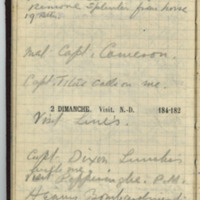 removed Splinter from horse
19 Batt.
met Capt. Cameron.
Capt. calls on me.
2 DIMANCHE. Visit. N.-D. 184-182
Visit Lines.
Capt. Dixon Lunches
with me.
P.M.
Heavy Bombardment